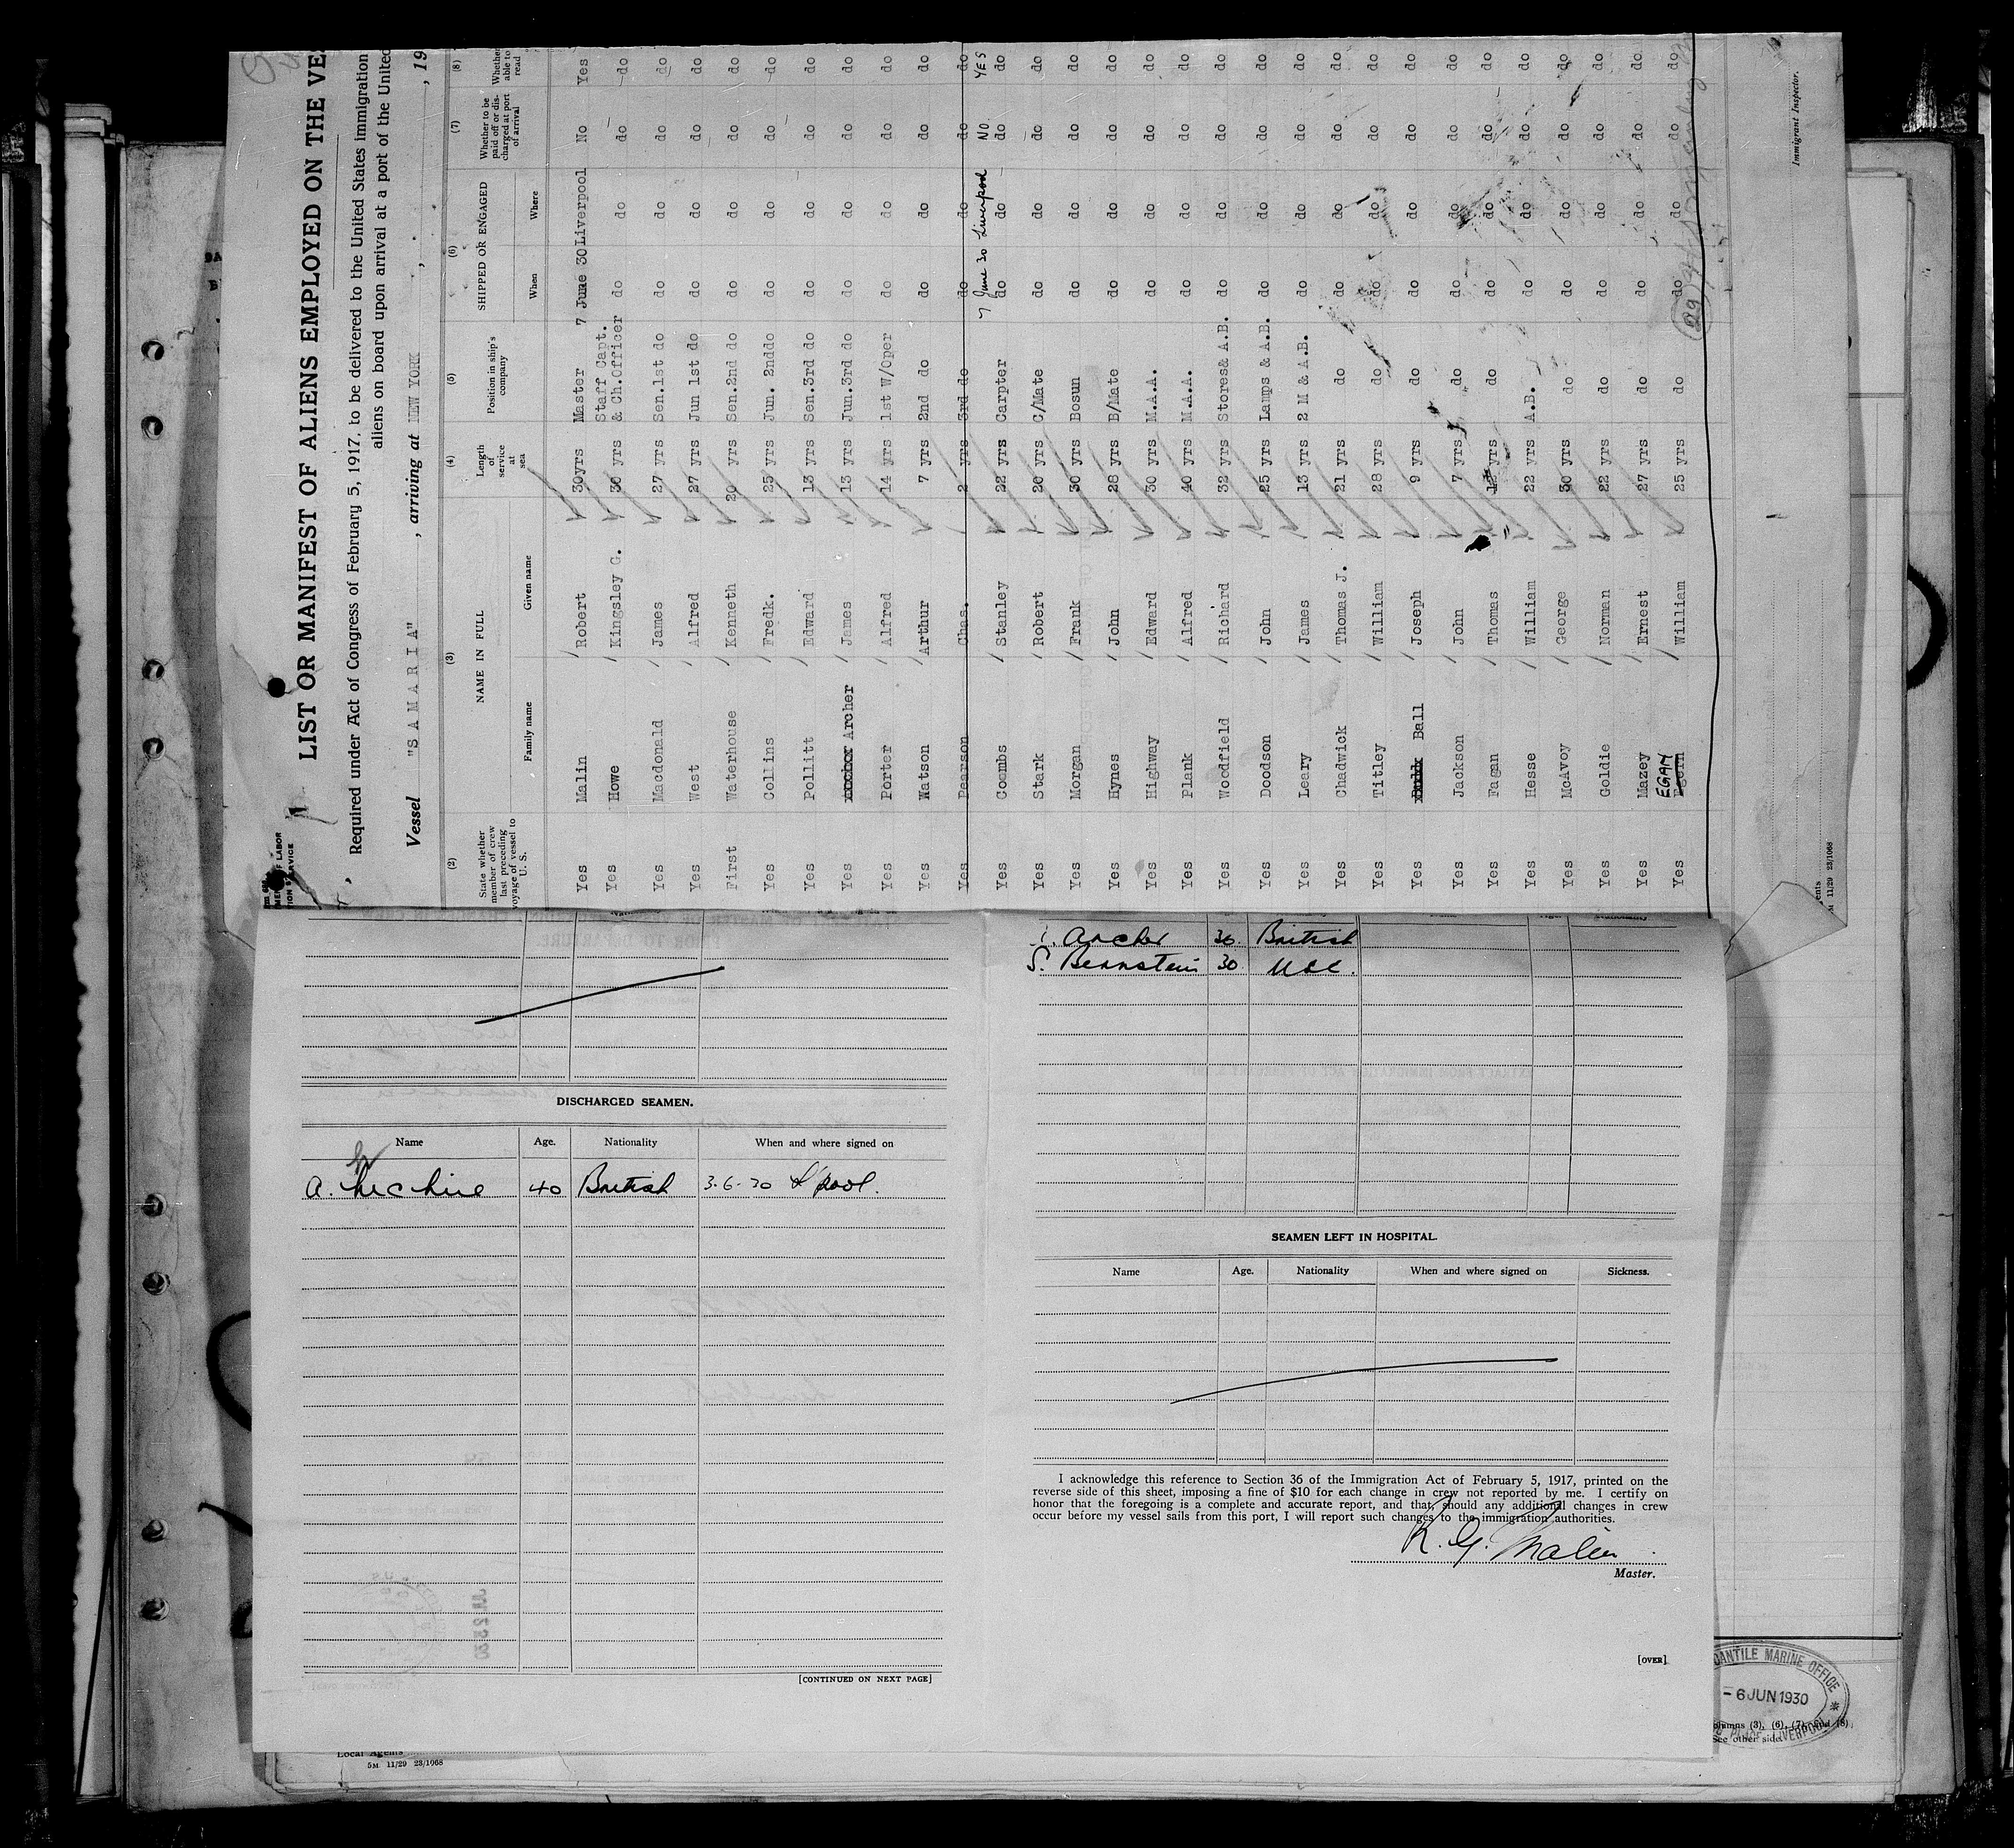 LIST OR MANIFEST OF ALIENS EMPLOYED ON THE VE
Required under Act of Congress of February 5, 1917, to be delivered to the United States Immigration
aliens on board upon arrival at a port of the United
Vessel "SAMARIA", arriving at NEW YORK, , 19
(2) (3) (4) (5) (6) (7) (8)
State whether member of crew last preceding voyage of vessel to U. S. NAME IN FULL Length of service at sea Position in ship's company SHIPPED OR ENGAGED Whether to be paid off or discharged at port of arrival Whether able to read
Family name Given name When Where
Yes Malin Robert 30yrs Master 7 June 30 Liverpool No Yes
Yes Howe Kingsley G. 30 yrs Staff Capt. & Ch.Officer do do do do
Yes Macdonald James 27 yrs Sen.1st do do do do do
Yes West Alfred 27 yrs Jun 1st do do do do do
First Waterhouse Kenneth 20 yrs Sen.2nd do do do do do
Yes Collins Fredk. 25 yrs Jun. 2nddo do do do do
Yes Pollitt Edward 13 yrs Sen.3rd do do do do do
Yes Archer James 13 yrs Jun.3rd do do do do do
Yes Porter Alfred 14 yrs 1st W/Oper do do do do
Yes Watson Arthur 7 yrs 2nd do do do do do
Yes Pearson Chas. 2 yrs 3rd do do do do do
7 June 30 Liverpool NO. YES
Yes Coombs Stanley 22 yrs Carpter do do do do
Yes Stark Robert 20 yrs C/Mate do do do do
Yes Morgan Frank 30 yrs Bosun do do do do
Yes Hynes John 28 yrs B/Mate do do do do
Yes Highway Edward 30 yrs M.A.A. do do do do
Yes Plank Alfred 40 yrs M.A.A. do do do do
Yes Woodfield Richard 32 yrs Stores& A.B. do do do do
Yes Doodson John 25 yrs Lamps & A.B. do do do do
Yes Leary James 13 yrs 2 M & A.B. do do do do
Yes Chadwick Thomas J. 21 yrs do do do do do
Yes Titley William 28 yrs do do do do do
Yes Ball Joseph 9 yrs do do do do do
Yes Jackson John 7 yrs do do do do do
Yes Fagan Thomas yrs do do do do do
Yes Hesse William 22 yrs A.B. do do do do
Yes McAvoy George 30 yrs do do do do do
Yes Goldie Norman 22 yrs do do do do do
Yes Mazey Ernest 27 yrs do do do do do
Yes EGAN William 25 yrs do do do do do
(29)
Immigrant Inspector.
11/29 23/1068
DISCHARGED SEAMEN.
Name Age. Nationality When and where signed on
40 British 3.6.30 L'pool.
[CONTINUED ON NEXT PAGE]
Archer 36 British
S. Bernstein 30 USC.
SEAMEN LEFT IN HOSPITAL.
Name Age. Nationality When and where signed on Sickness.
I acknowledge this reference to Section 36 of the Immigration Act of February 5, 1917, printed on the
reverse side of this sheet, imposing a fine of $10 for each change in crew not reported by me. I certify on
honor that the foregoing is a complete and accurate report, and that, should any additional changes in crew
occur before my vessel sails from this port, I will report such changes to the immigration authorities.
R. G. Malin
Master.
[OVER]
Local Agents
5M 11/29 23/1068
CANTILE MARINE OFFICE
- 6 JUN 1930
PLACE LIVERPOOL
columns (3), (6), (7), and (8)
See other side